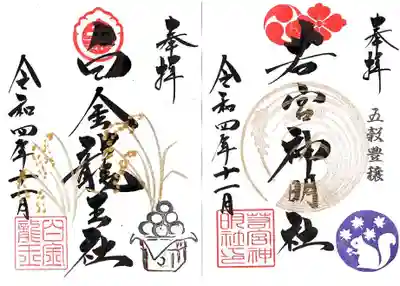 奉拝
若宮神明社
五穀豊穣
令和四年十一月
若宮神明社印
奉拝
白金龍王社
令和四年十一月
白金龍王